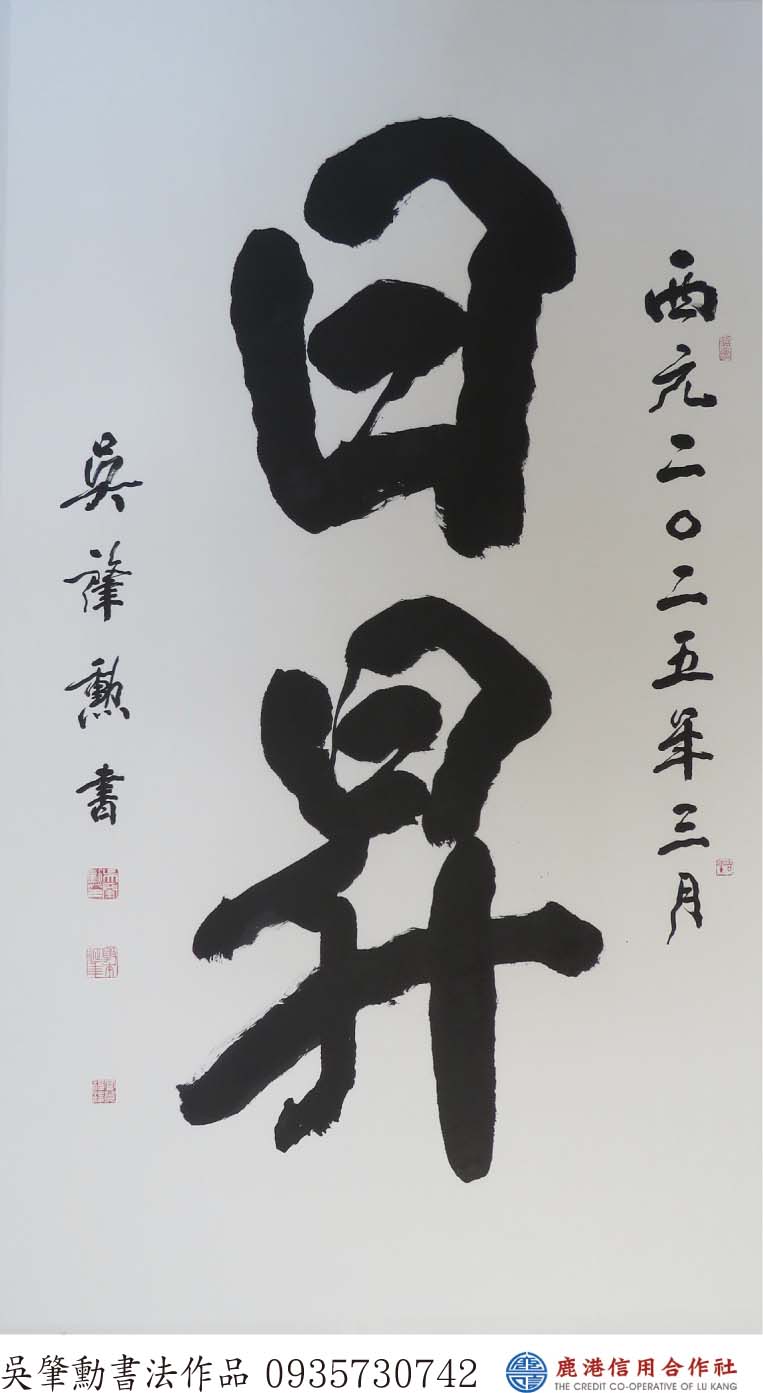 西元二〇二五年三月
日昇
吳肇勳書
吳肇勳書法作品 0935730742
鹿港信用合作社
THE CREDIT CO-OPERATIVE OF LU KANG